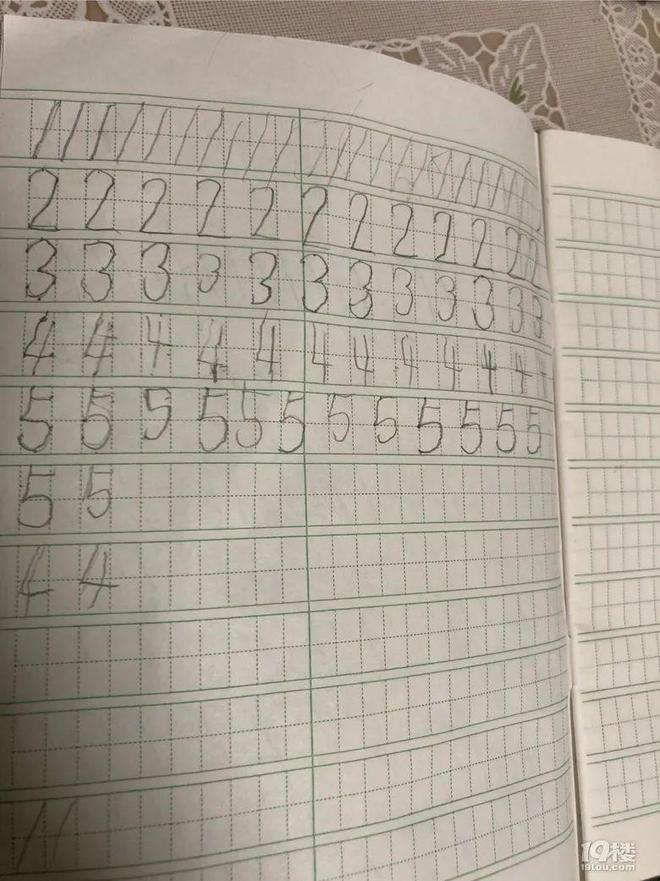 1 1 1 1 1 1 1 1 1 1 1 1 1 1 1 1 1 1 1 1 1
2 2 2 2 2 2 2 2 2 2 2 2
3 3 3 3 3 3 3 3 3 3 3 3
4 4 4 4 4 4 4 4 4 4 4 4
5 5 5 5 5 5 5 5 5 5 5 5
5 5
4 4
1 1
19楼
19lou.com